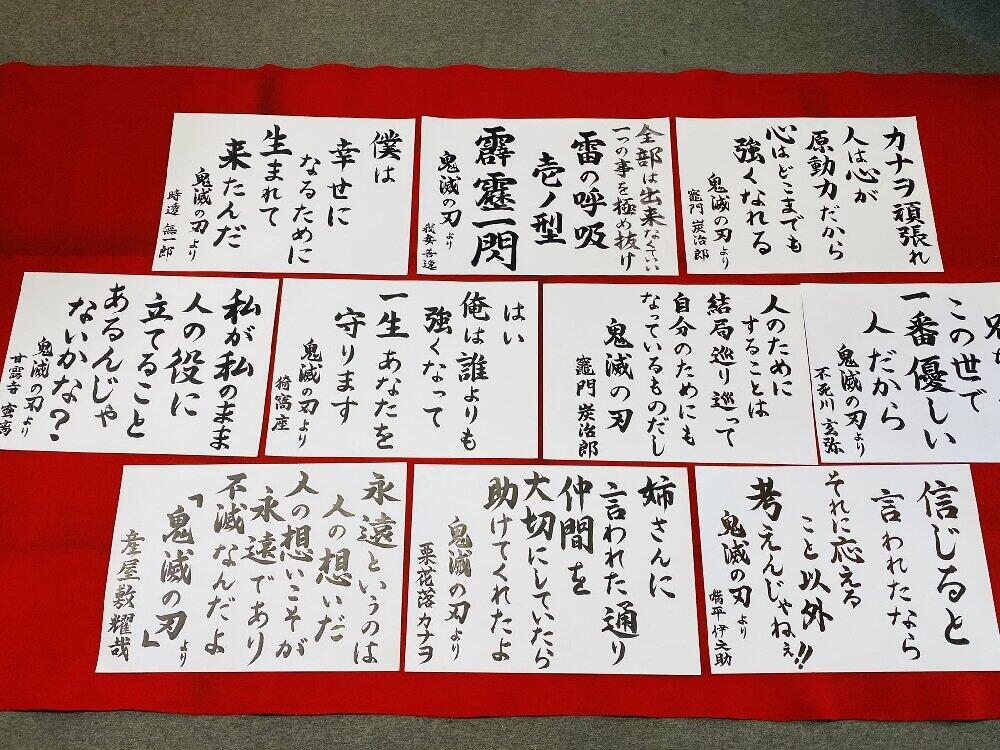 カナヲ頑張れ
人は心が
原動力だから
心はどこまでも
強くなれる
鬼滅の刃より
竈門 炭治郎
全部は出来なくていい
一つの事を極め抜け
雷の呼吸
壱ノ型
霹靂一閃
鬼滅の刃より
我妻善逸
僕は
幸せに
なるために
生まれて
来たんだ
鬼滅の刃より
時透 無一郎
この世で
一番優しい
人だから
鬼滅の刃より
不死川 玄弥
人のために
することは
結局巡り巡って
自分のためにも
なっているものだし
鬼滅の刃
竈門 炭治郎
はい
俺は誰よりも
強くなって
一生あなたを
守ります
鬼滅の刃より
猗窩座
私が私のまま
人の役に
立てること
あるんじゃ
ないかな?
鬼滅の刃より
甘露寺 蜜璃
信じると
言われたなら
それに応える
こと以外
考えんじゃねぇ!!
鬼滅の刃より
嘴平 伊之助
姉さんに
言われた通り
仲間を
大切にしていたら
助けてくれたよ
鬼滅の刃より
栗花落 カナヲ
永遠というのは
人の想いだ
人の想いこそが
永遠であり
不滅なんだよ
「鬼滅の刃」より
産屋敷耀哉